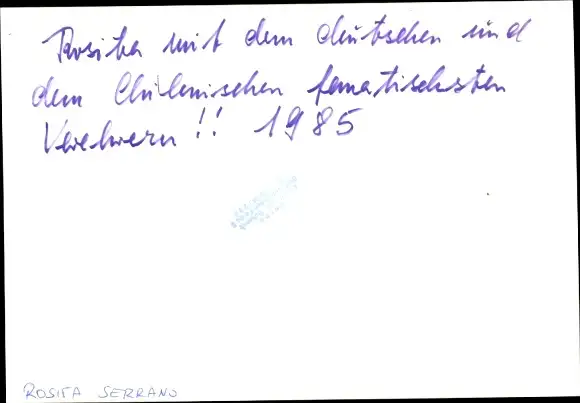 Rosita mit dem deutschen und
dem Chilenischen fanatischsten
Verehrern!! 1985
ROSITA SERRANO